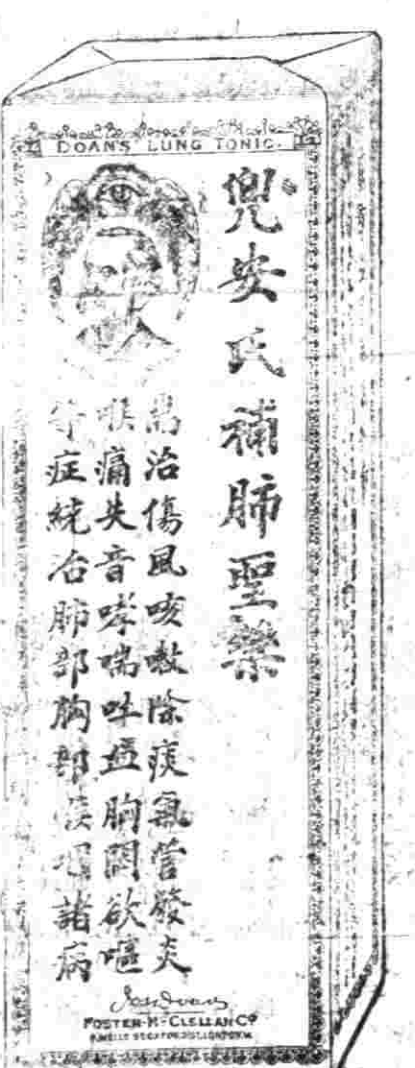 DOAN'S LUNG TONIC.
兜安氏補肺聖藥
治傷風咳嗽除痰氣管發炎
喉痛失音哮喘吐血胸悶欲嘔
等症純治肺部胸部諸病
FOSTER-McCLELLAN Co